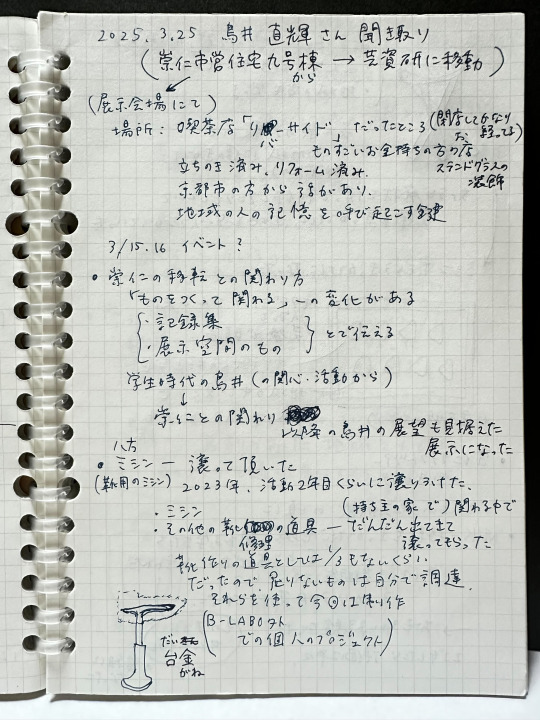 2025.3.25 鳥井 直輝さん 聞き取り
(崇仁市営住宅九号棟から → 芸資研に移動)
(展示会場にて)
場所: 喫茶店「リバーサイド」だったところ (閉店してかなり経ってる)
ものすごいお金持ちの方の店
ステンドグラスの装飾
立ちのき済み、リフォーム済み.
京都市の方から話があり.
地域の人の記憶を呼び起こす鍵
3/15.16 イベント?
• 崇仁の移転との関わり方
「ものをつくって関わる」への変化がある
・記録集
・展示空間のもの
とで伝える
学生時代の鳥井(の関心・活動から)
↓
崇仁との関わり
以降の鳥井の展望も見据えた
展示になった
八方
• ミシン ー 譲って頂いた
(靴用のミシン) 2023年、活動2年目くらいに譲りうけた.
・ミシン (持ち主の家で)関わる中で
・その他の靴修理の道具 ー だんだん出てきて
譲ってもらった
靴作りの道具としては1/3もないくらい
だったので、足りないものは自分で調達.
それらを使って今回は制作
(B-LABO外
での個人のプロジェクト)
だいがね
台金